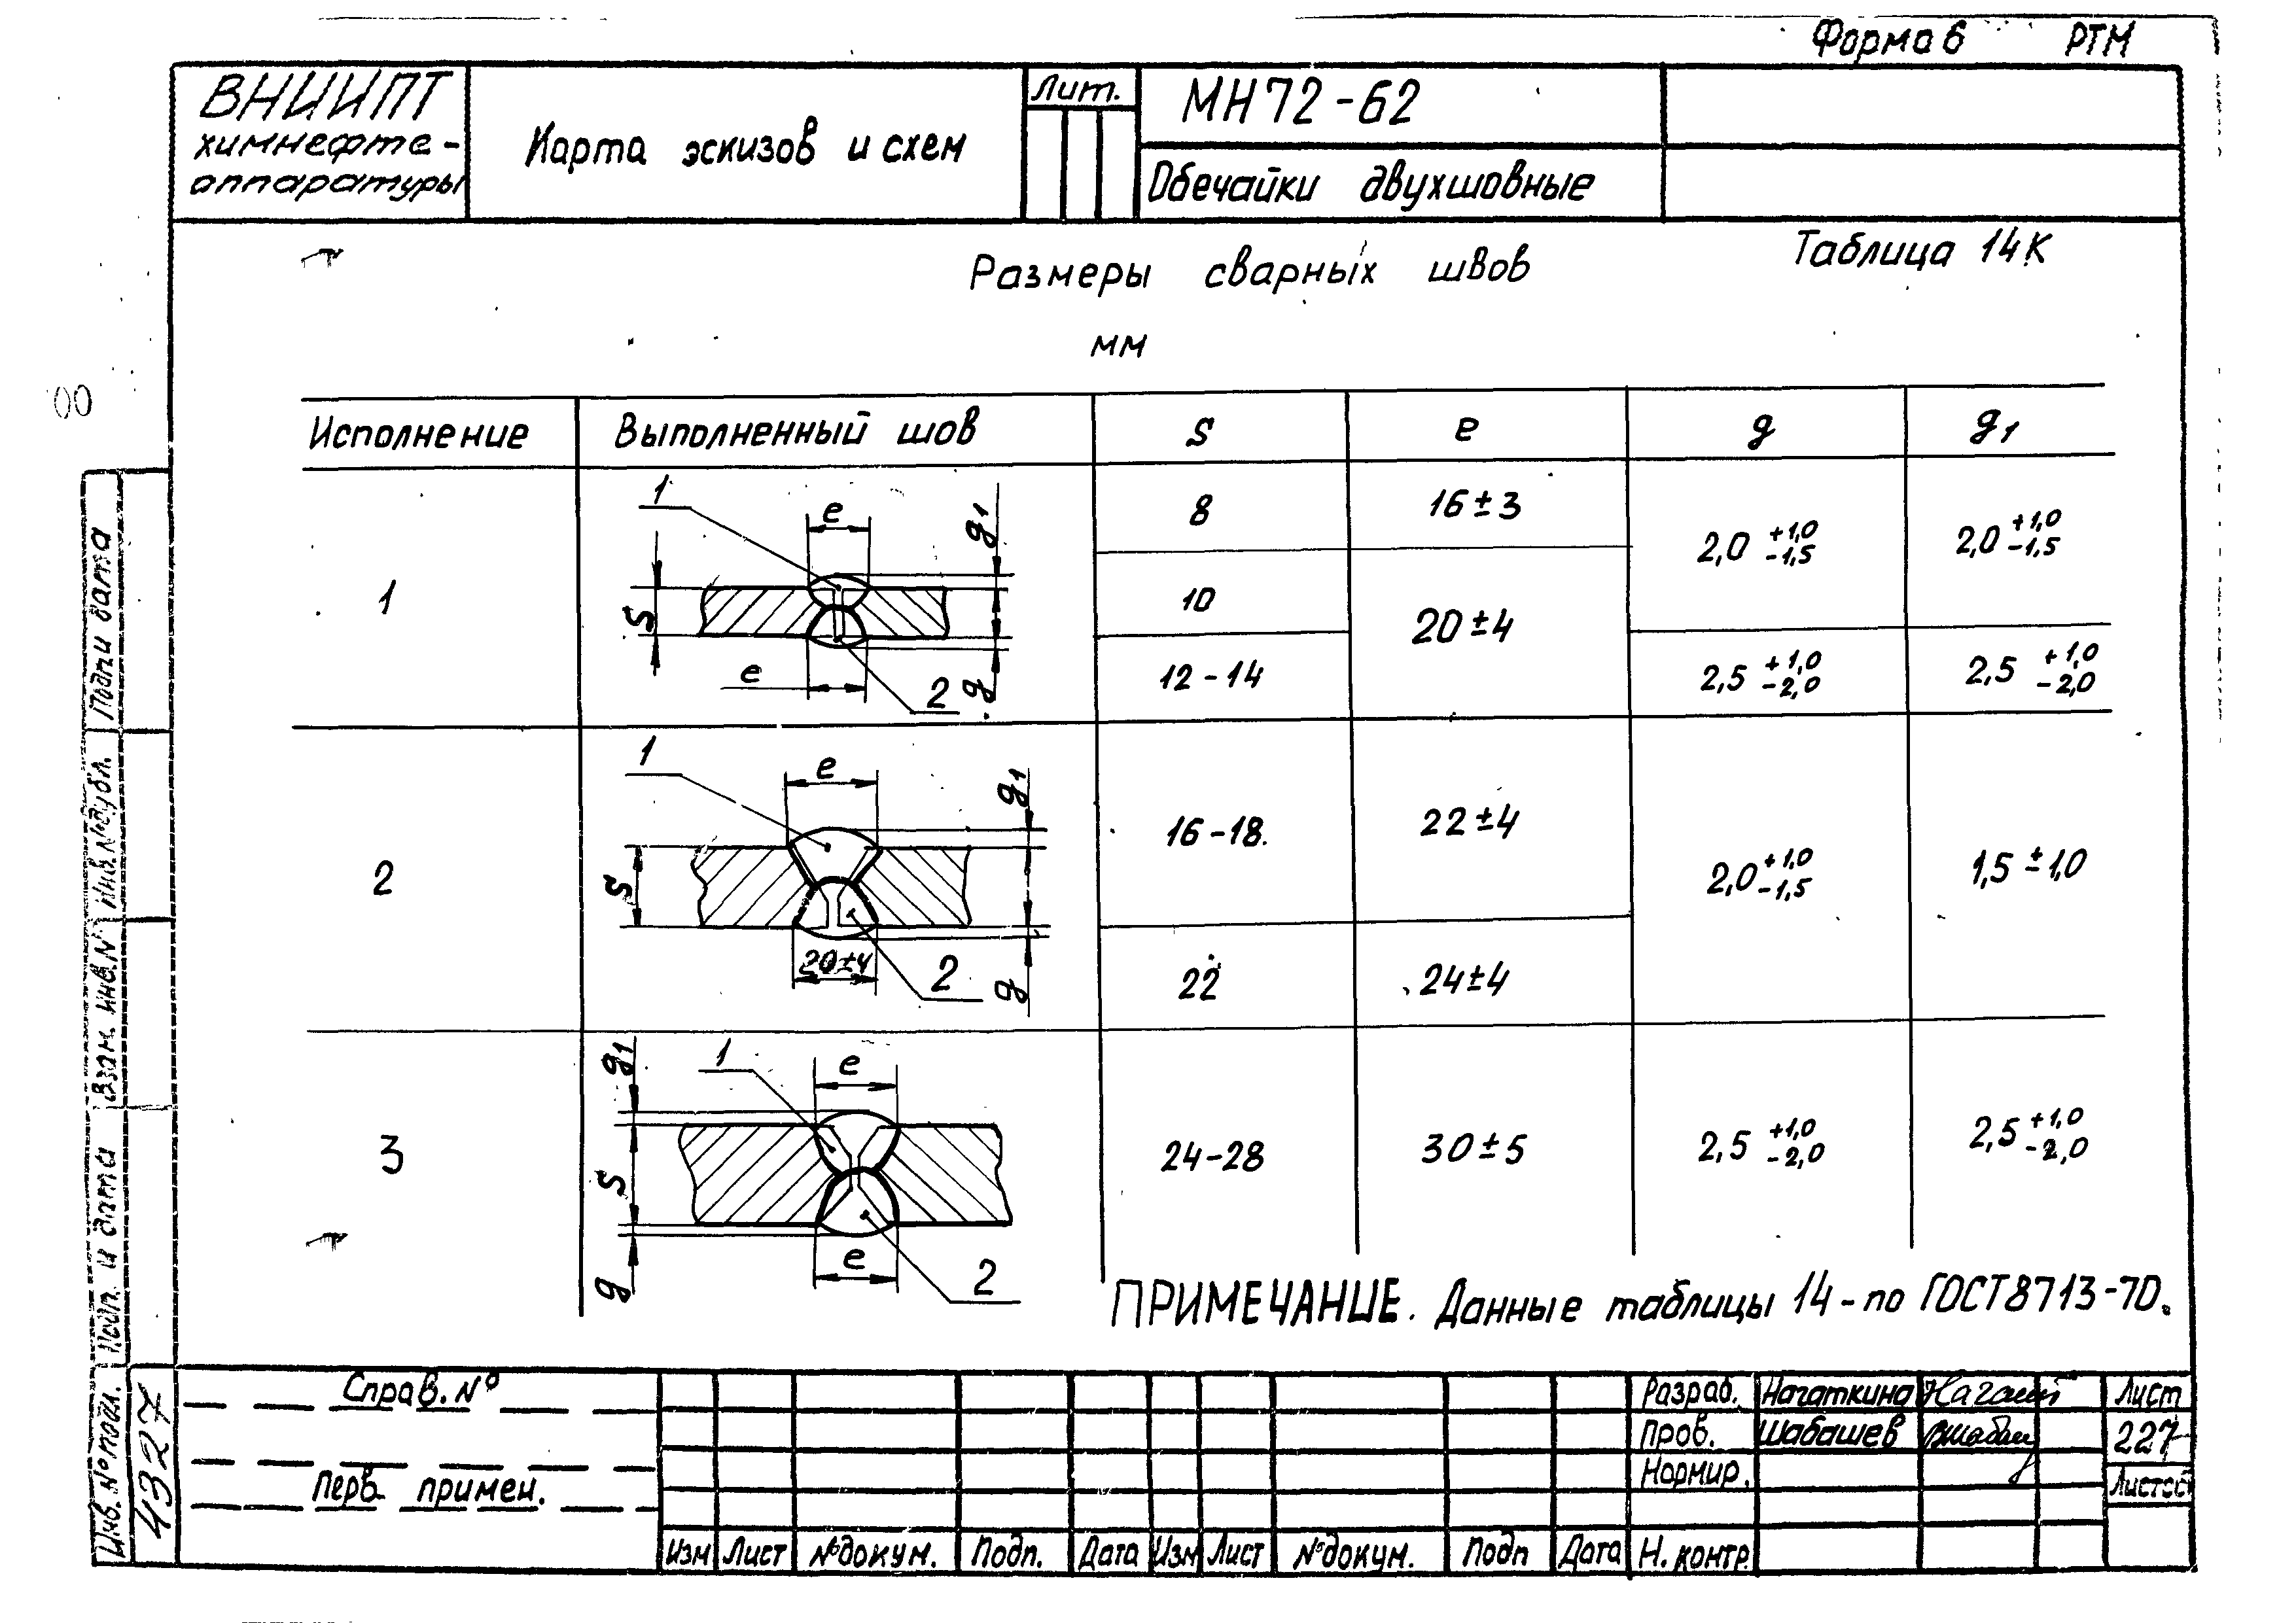 Форма 6 РТМ
ВНИИПТ
химнефте-
аппаратуры
Карта эскизов и схем
Лит.
МН72-62
Обечайки двухшовные
Таблица 14К
Размеры сварных швов
мм
Исполнение Выполненный шов S e g g1
1
1 e g1 S e 2 g
8 16±3 2,0 +1,0 -1,5 2,0 +1,0 -1,5
10 20±4
12-14 2,5 +1,0 -2,0 2,5 +1,0 -2,0
2
1 e g1 S 20±4 2 g
16-18 22±4 2,0 +1,0 -1,5 1,5 ±1,0
22 24±4
3
g1 1 e S g e 2
24-28 30±5 2,5 +1,0 -2,0 2,5 +1,0 -2,0
ПРИМЕЧАНИЕ. Данные таблицы 14-по ГОСТ8713-70.
Подп и дата
Инв. № дубл.
Взам. инв. N
Подп. и дата
Инв. № подл.
4327
Справ. №
Перв. примен.
Разраб. Нагаткина Лист
Пров. Шабашев 227
Нормир. Листов
Изм Лист № докум. Подп. Дата Изм Лист № докум. Подп Дата Н. контр.